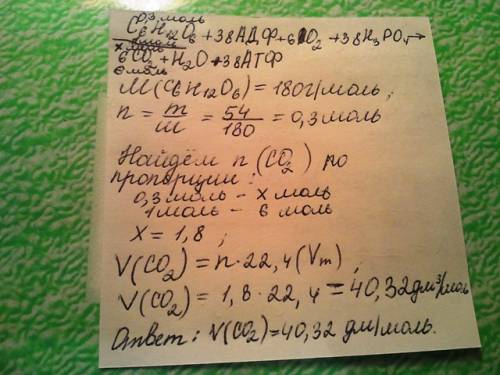 0,3 моль
C6H12O6 +38АДФ+6O2 +38H3PO4→
x моль
6CO2 + H2O +38АТФ
6 моль
M(C6H12O6)=180г/моль;
n = m/m = 54/180 = 0,3 моль
Найдём n (CO2) по
пропорции:
0,3 моль – x моль
1 моль – 6 моль
X = 1,8 ;
V(CO2) = n·22,4 (Vm) ;
V(CO2) = 1,8·22,4 = 40,32 дм³/моль
Ответ: V(CO2)=40,32 дм/моль.